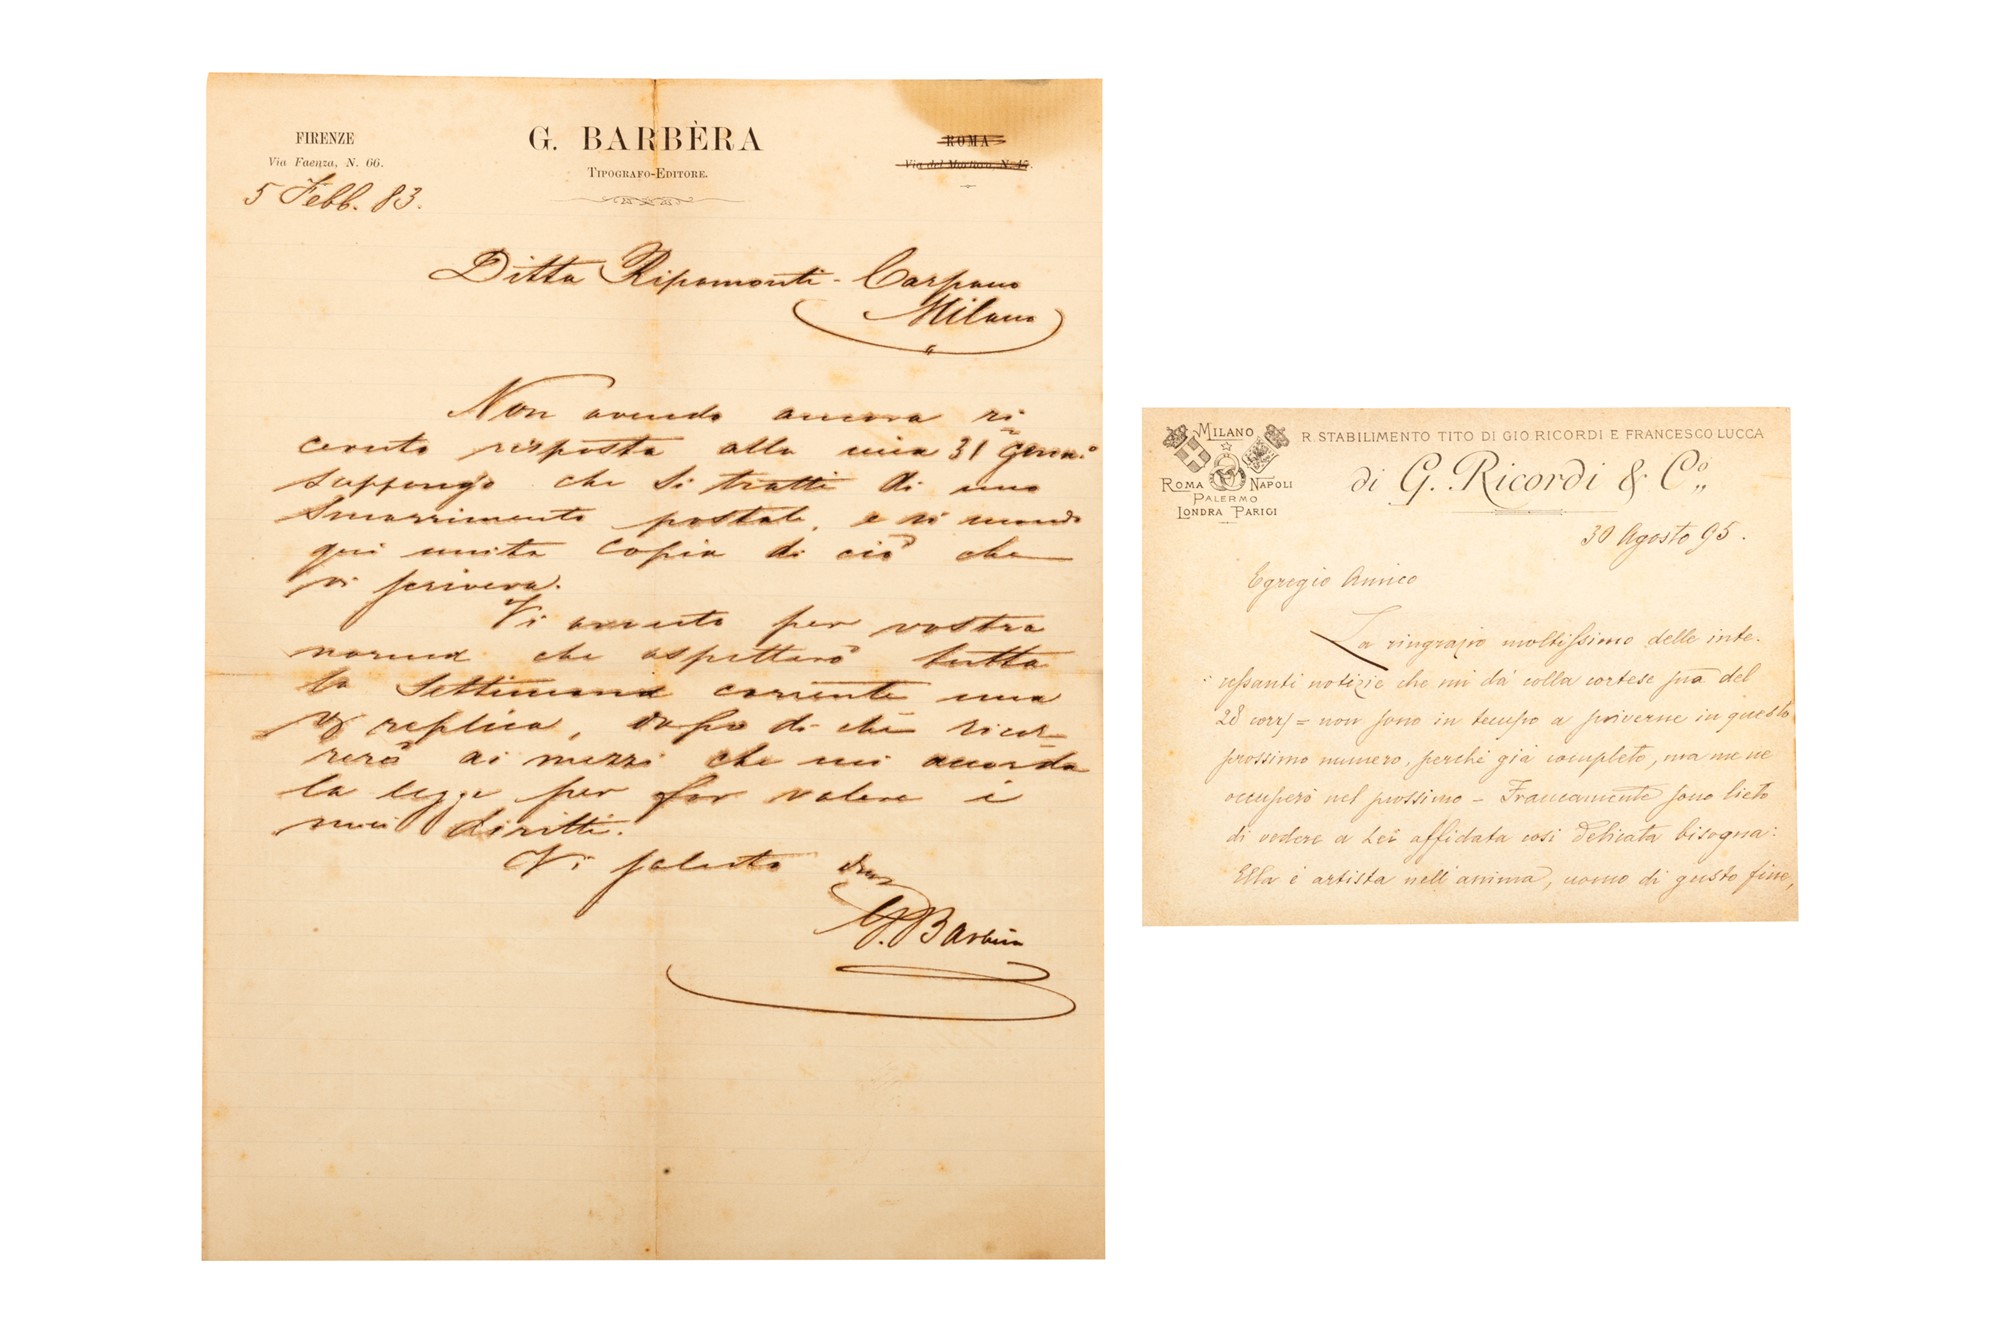 FIRENZE
Via Faenza, N. 66.
G. BARBÈRA
TIPOGRAFO-EDITORE.
ROMA
Via del N. 15.
5 Febb. 83.
Ditta Ripamonti - Carpano
Milano
Non avendo ancora ri=
cevuto risposta alla mia 31 genn.º
suppongo che si tratti di uno
smarrimento postale, e vi mando
qui unita copia di ciò che
vi scriveva.
Vi avverto per vostra
norma che aspetterò tutta
la settimana corrente una
replica, dopo di che ricor=
rerò ai mezzi che mi accorda
la legge per far valere i
miei diritti.
Vi saluto
G. Barbèra
MILANO
ROMA NAPOLI
PALERMO
LONDRA PARIGI
R. STABILIMENTO TITO DI GIO RICORDI E FRANCESCO LUCCA
di G. Ricordi & Cº
30 Agosto 95.
Egregio Amico
La ringrazio moltissimo delle inte-
ressanti notizie che mi dà colla cortese sua del
28 corr = non sono in tempo a scriverne in questo
prossimo numero, perchè già completo, ma me ne
occuperò nel prossimo - Francamente sono lieto
di vedere a Lei affidata così delicata bisogna:
Ella è artista nell'anima, uomo di gusto fino,